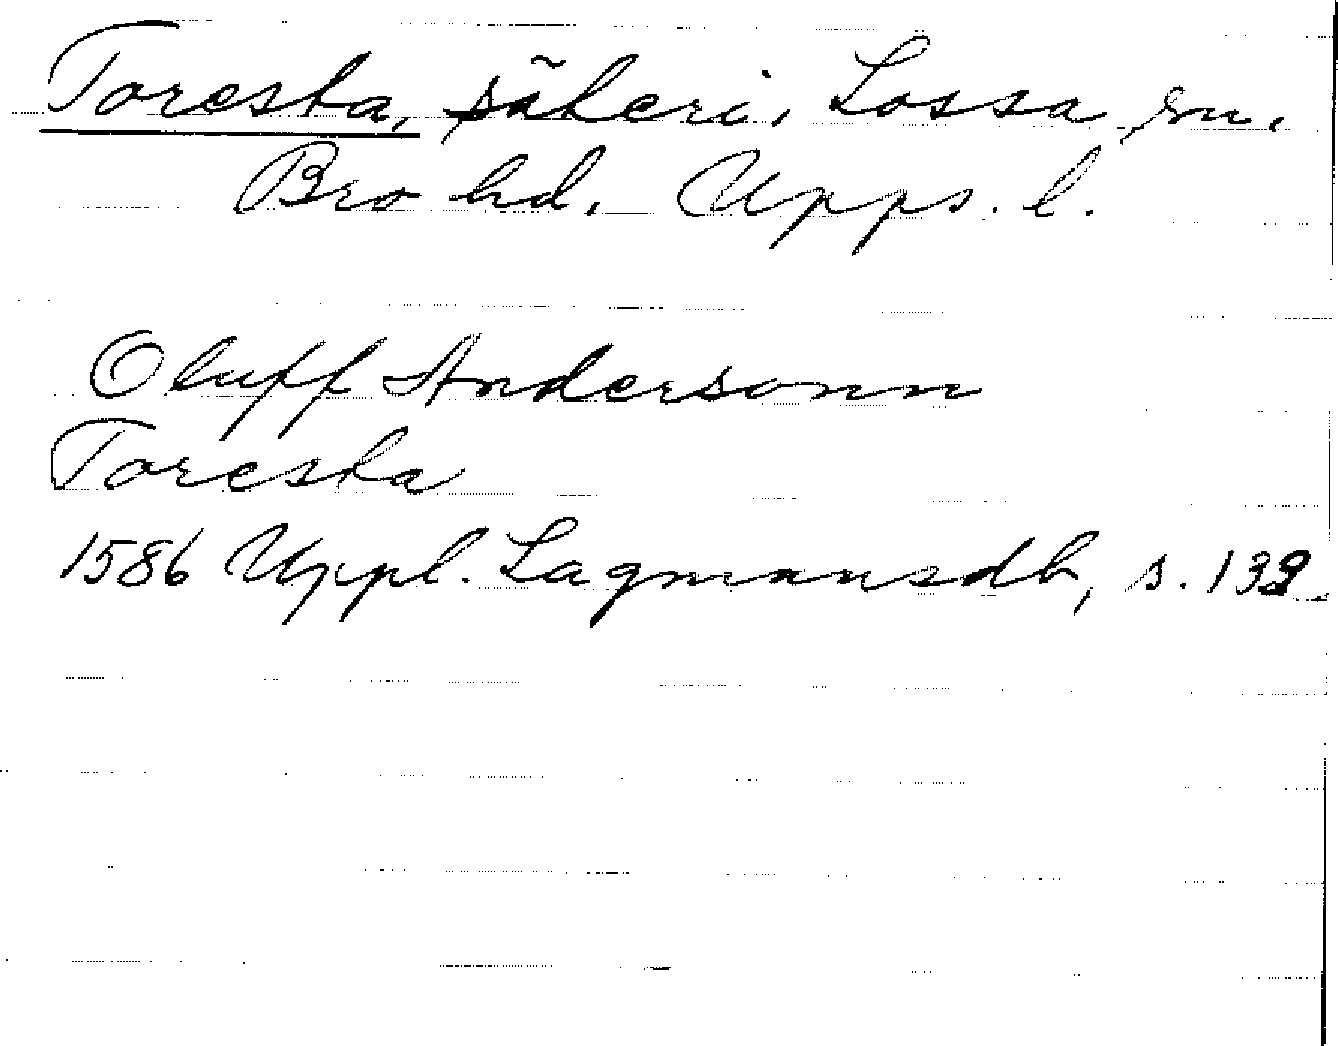 Toresta, säteri, Lossa sn.
Bro hd. Upps. l.
Oluff Andersonn
Toresta
1586 Uppl. Lagmansdb, s.